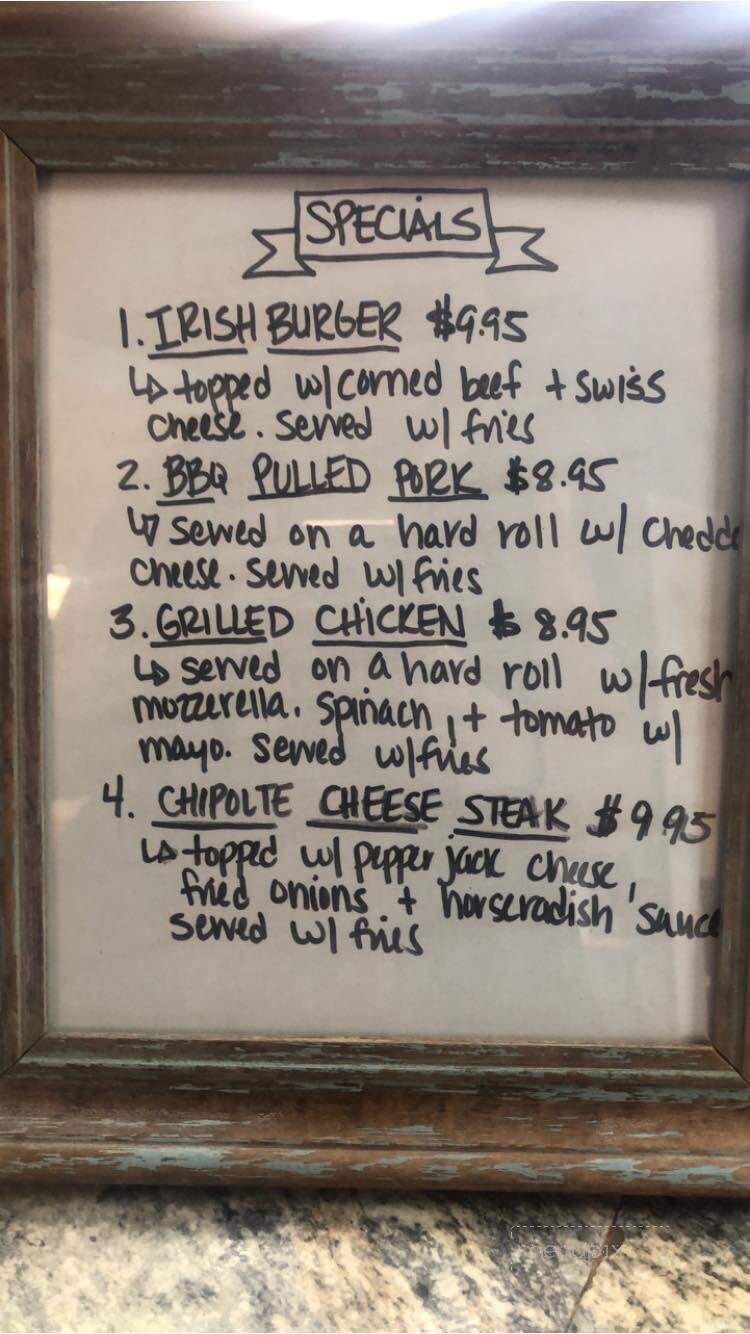 SPECIALS
1. IRISH BURGER $9.95
↳ topped w/ corned beef + swiss
cheese. served w/ fries
2. BBQ PULLED PORK $8.95
↳ served on a hard roll w/ Chedd
cheese. served w/ fries
3. GRILLED CHICKEN $8.95
↳ served on a hard roll w/ fresh
mozzerella, spinach, + tomato w/
mayo. served w/ fries
4. CHIPOLTE CHEESE STEAK $9.95
↳ topped w/ pepper jack cheese,
fried onions + horseradish sauce
served w/ fries
menupix